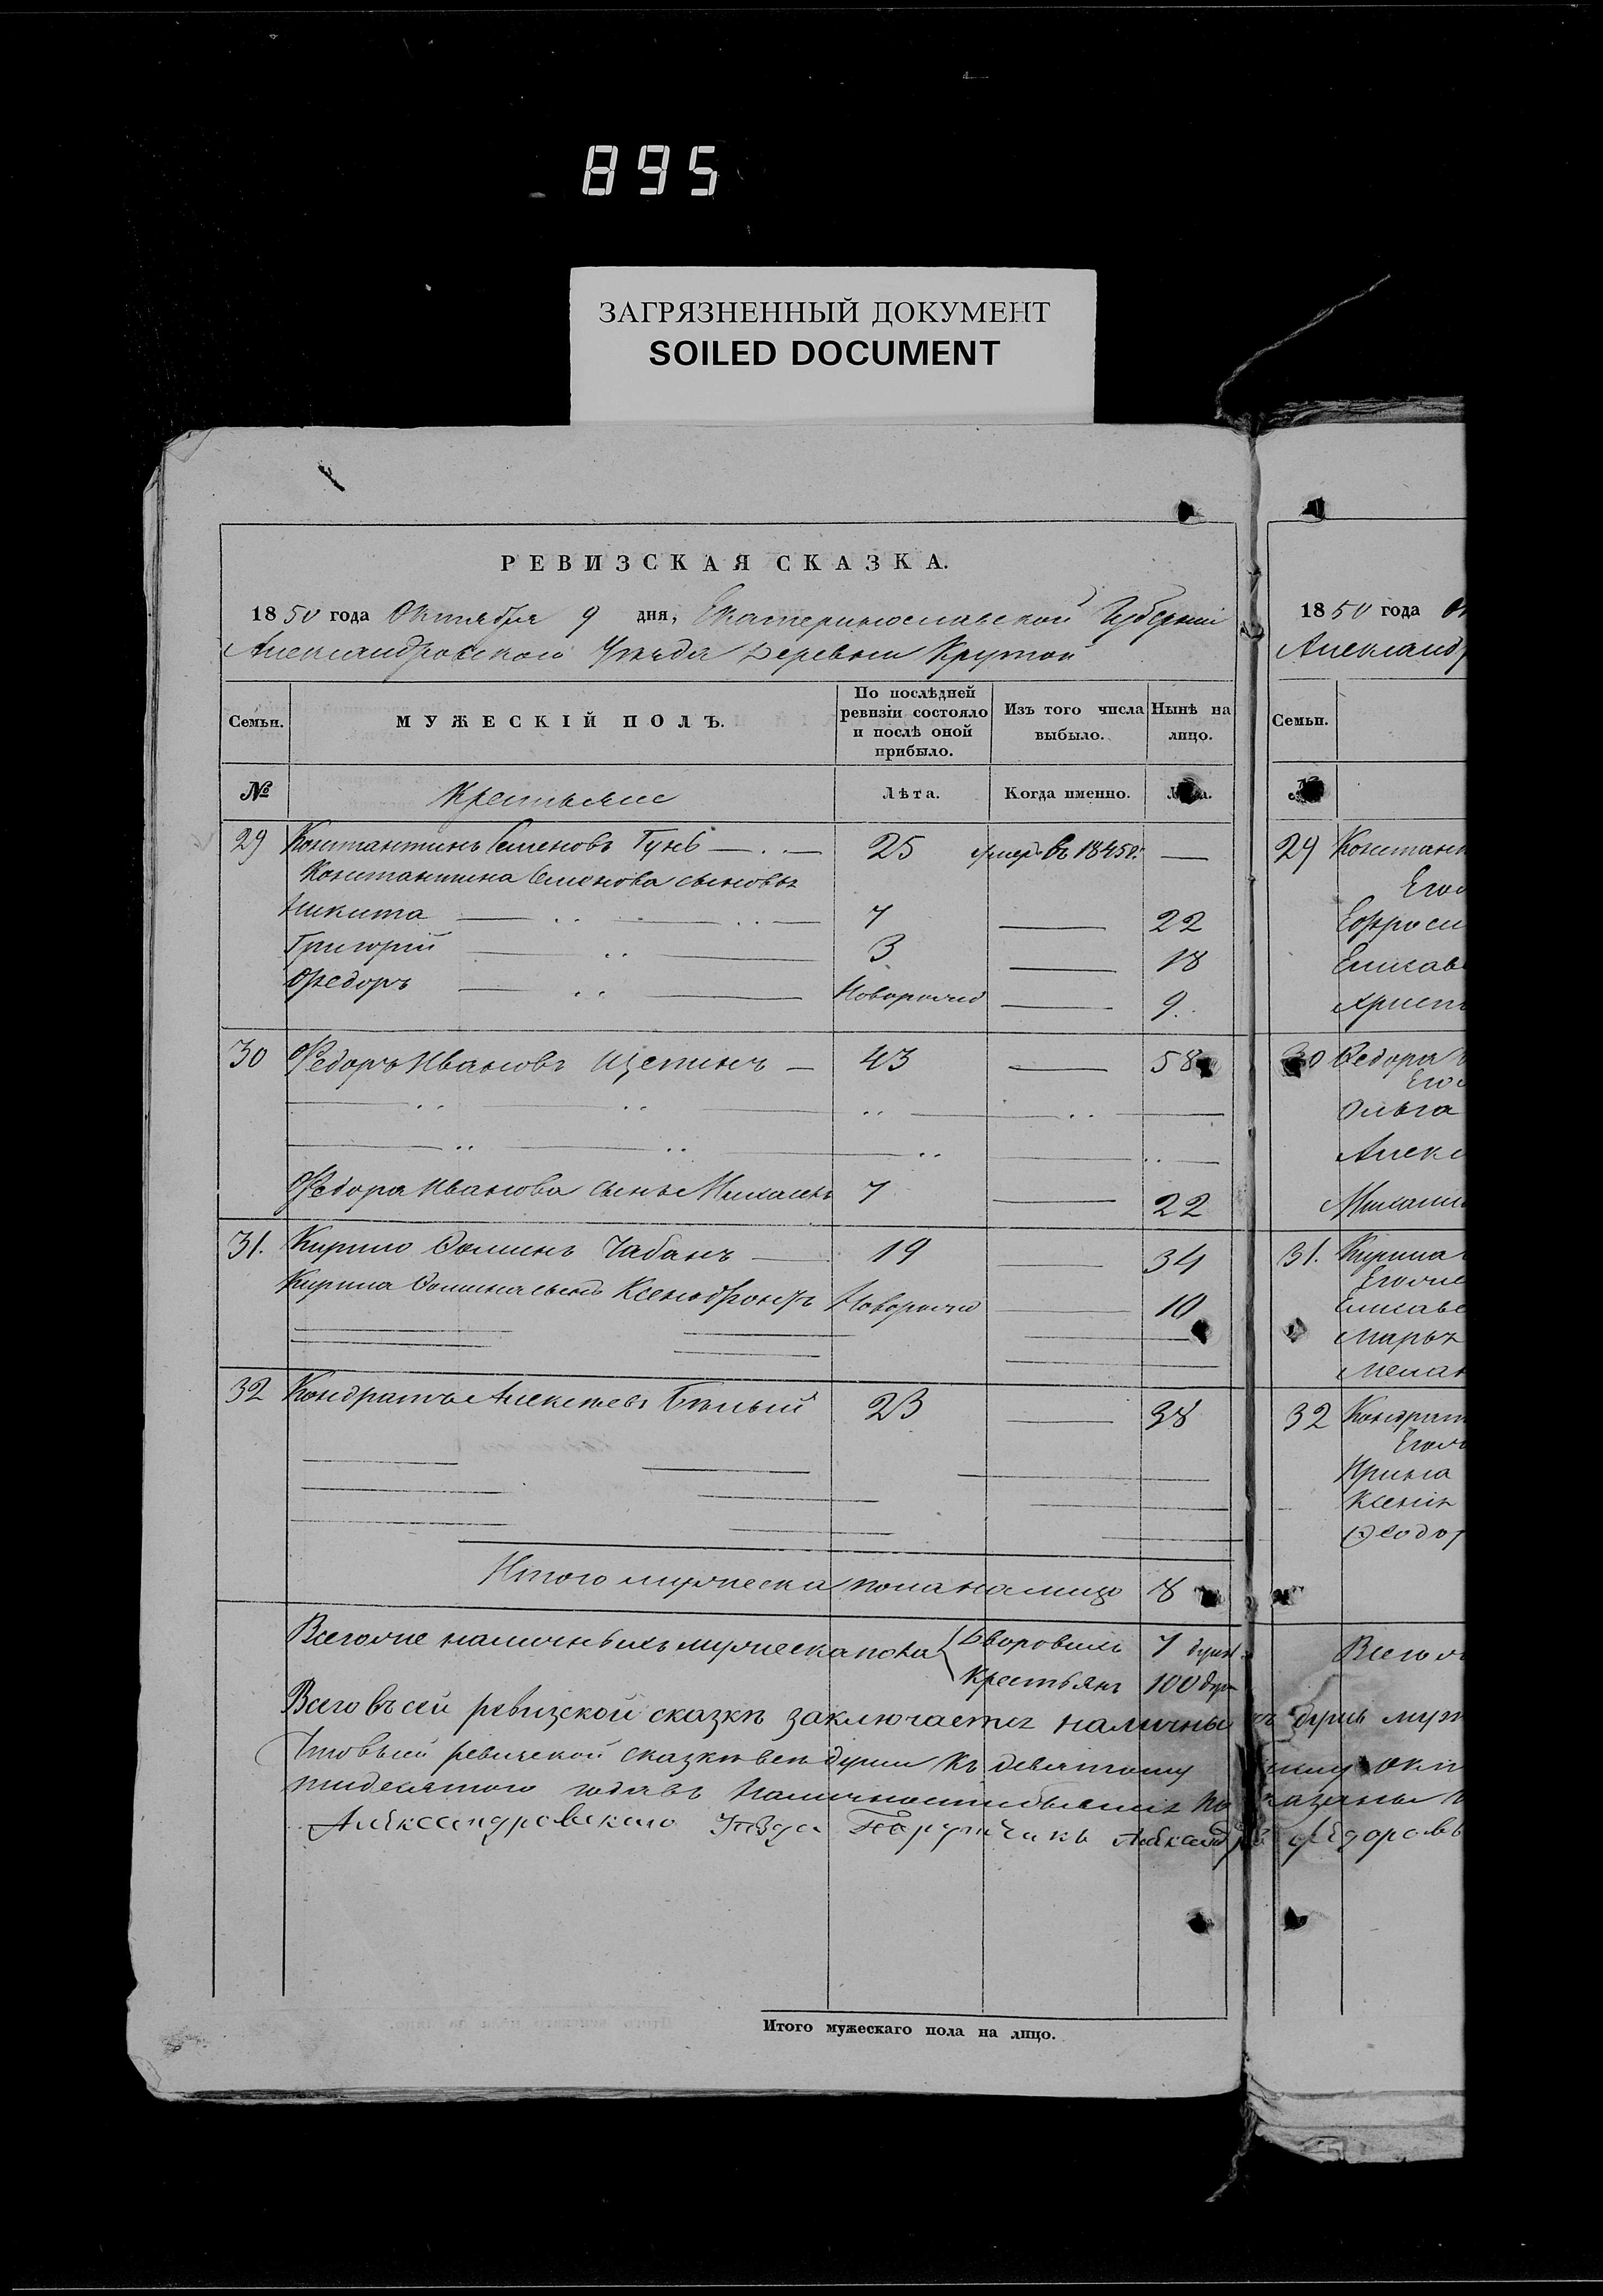 895
ЗАГРЯЗНЕННЫЙ ДОКУМЕНТ
SOILED DOCUMENT
РЕВИЗСКАЯ СКАЗКА.
1850 года Октября 9 дня, Екатеринославской Губерніи
Александровского Уѣзда Деревни Крутой
Семьи. МУЖЕСКІЙ ПОЛЪ. По послѣдней ревизіи состояло и послѣ оной прибыло. Изъ того числа выбыло. Нынѣ на лицо.
№ Крестьяне Лѣта. Когда именно. Лѣта.
29 Константинъ Семеновъ Гунь 25 умеръ въ 1845 г. —
Константина Семенова сыновья
Никита 7 — 22
Григорій 3 — 18
Федоръ Новорожд — 9.
30 Федоръ Ивановъ Щепинъ — 43 — 58
Федора Иванова сынъ Михаилъ 7 — 22
31. Кирило Фоминъ Чабанъ — 19 — 34
Кирила Фомина сынъ Ксенофонтъ Новорожд — 10
32 Кондратъ Алексѣевъ Бѣлый 23 — 38
Итого мужеска пола на лицо 8
Всего же наличныхъ мужеска пола Дворовыхъ 7 душъ.
Крестьянъ 100 душ
Всего въ сей ревизской сказкѣ заключается наличныхъ душъ муж
Что въ сей ревизской сказкѣ все души къ девятому
тидесятого года въ наличности бывшія показаны
Александровскаго Уѣзда Порутчикъ Александръ Федоровъ
1850 года Ок
Александр
Семьи.
29 Констант
Его
Ефроси
Елисаве
Христ
30 Федора
Его
Ольга
Алекс
Михаил
31. Кирила
Егоже
Елисаве
Марья
Мелан
32 Кондрат
Егож
Ирина
Ксенія
Феодо
Всего ж
Итого мужескаго пола на лицо.